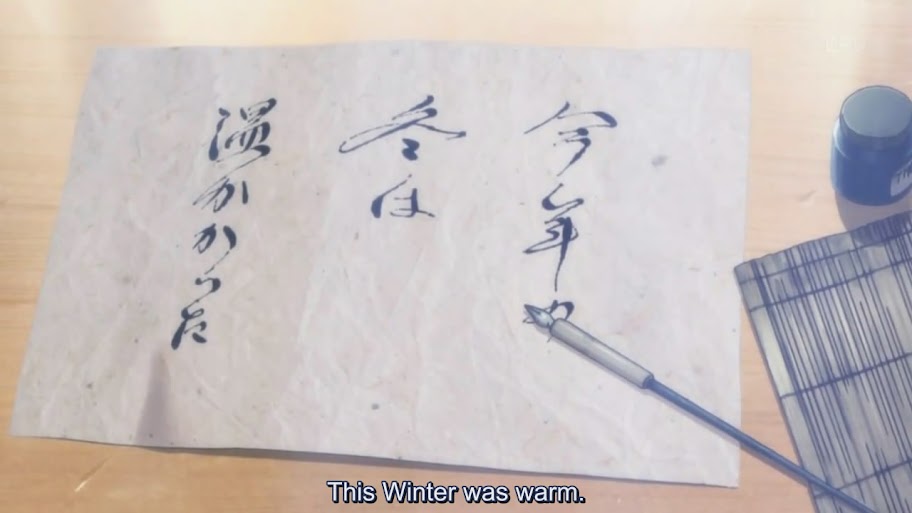 今年の
冬は
温かかった
This Winter was warm.